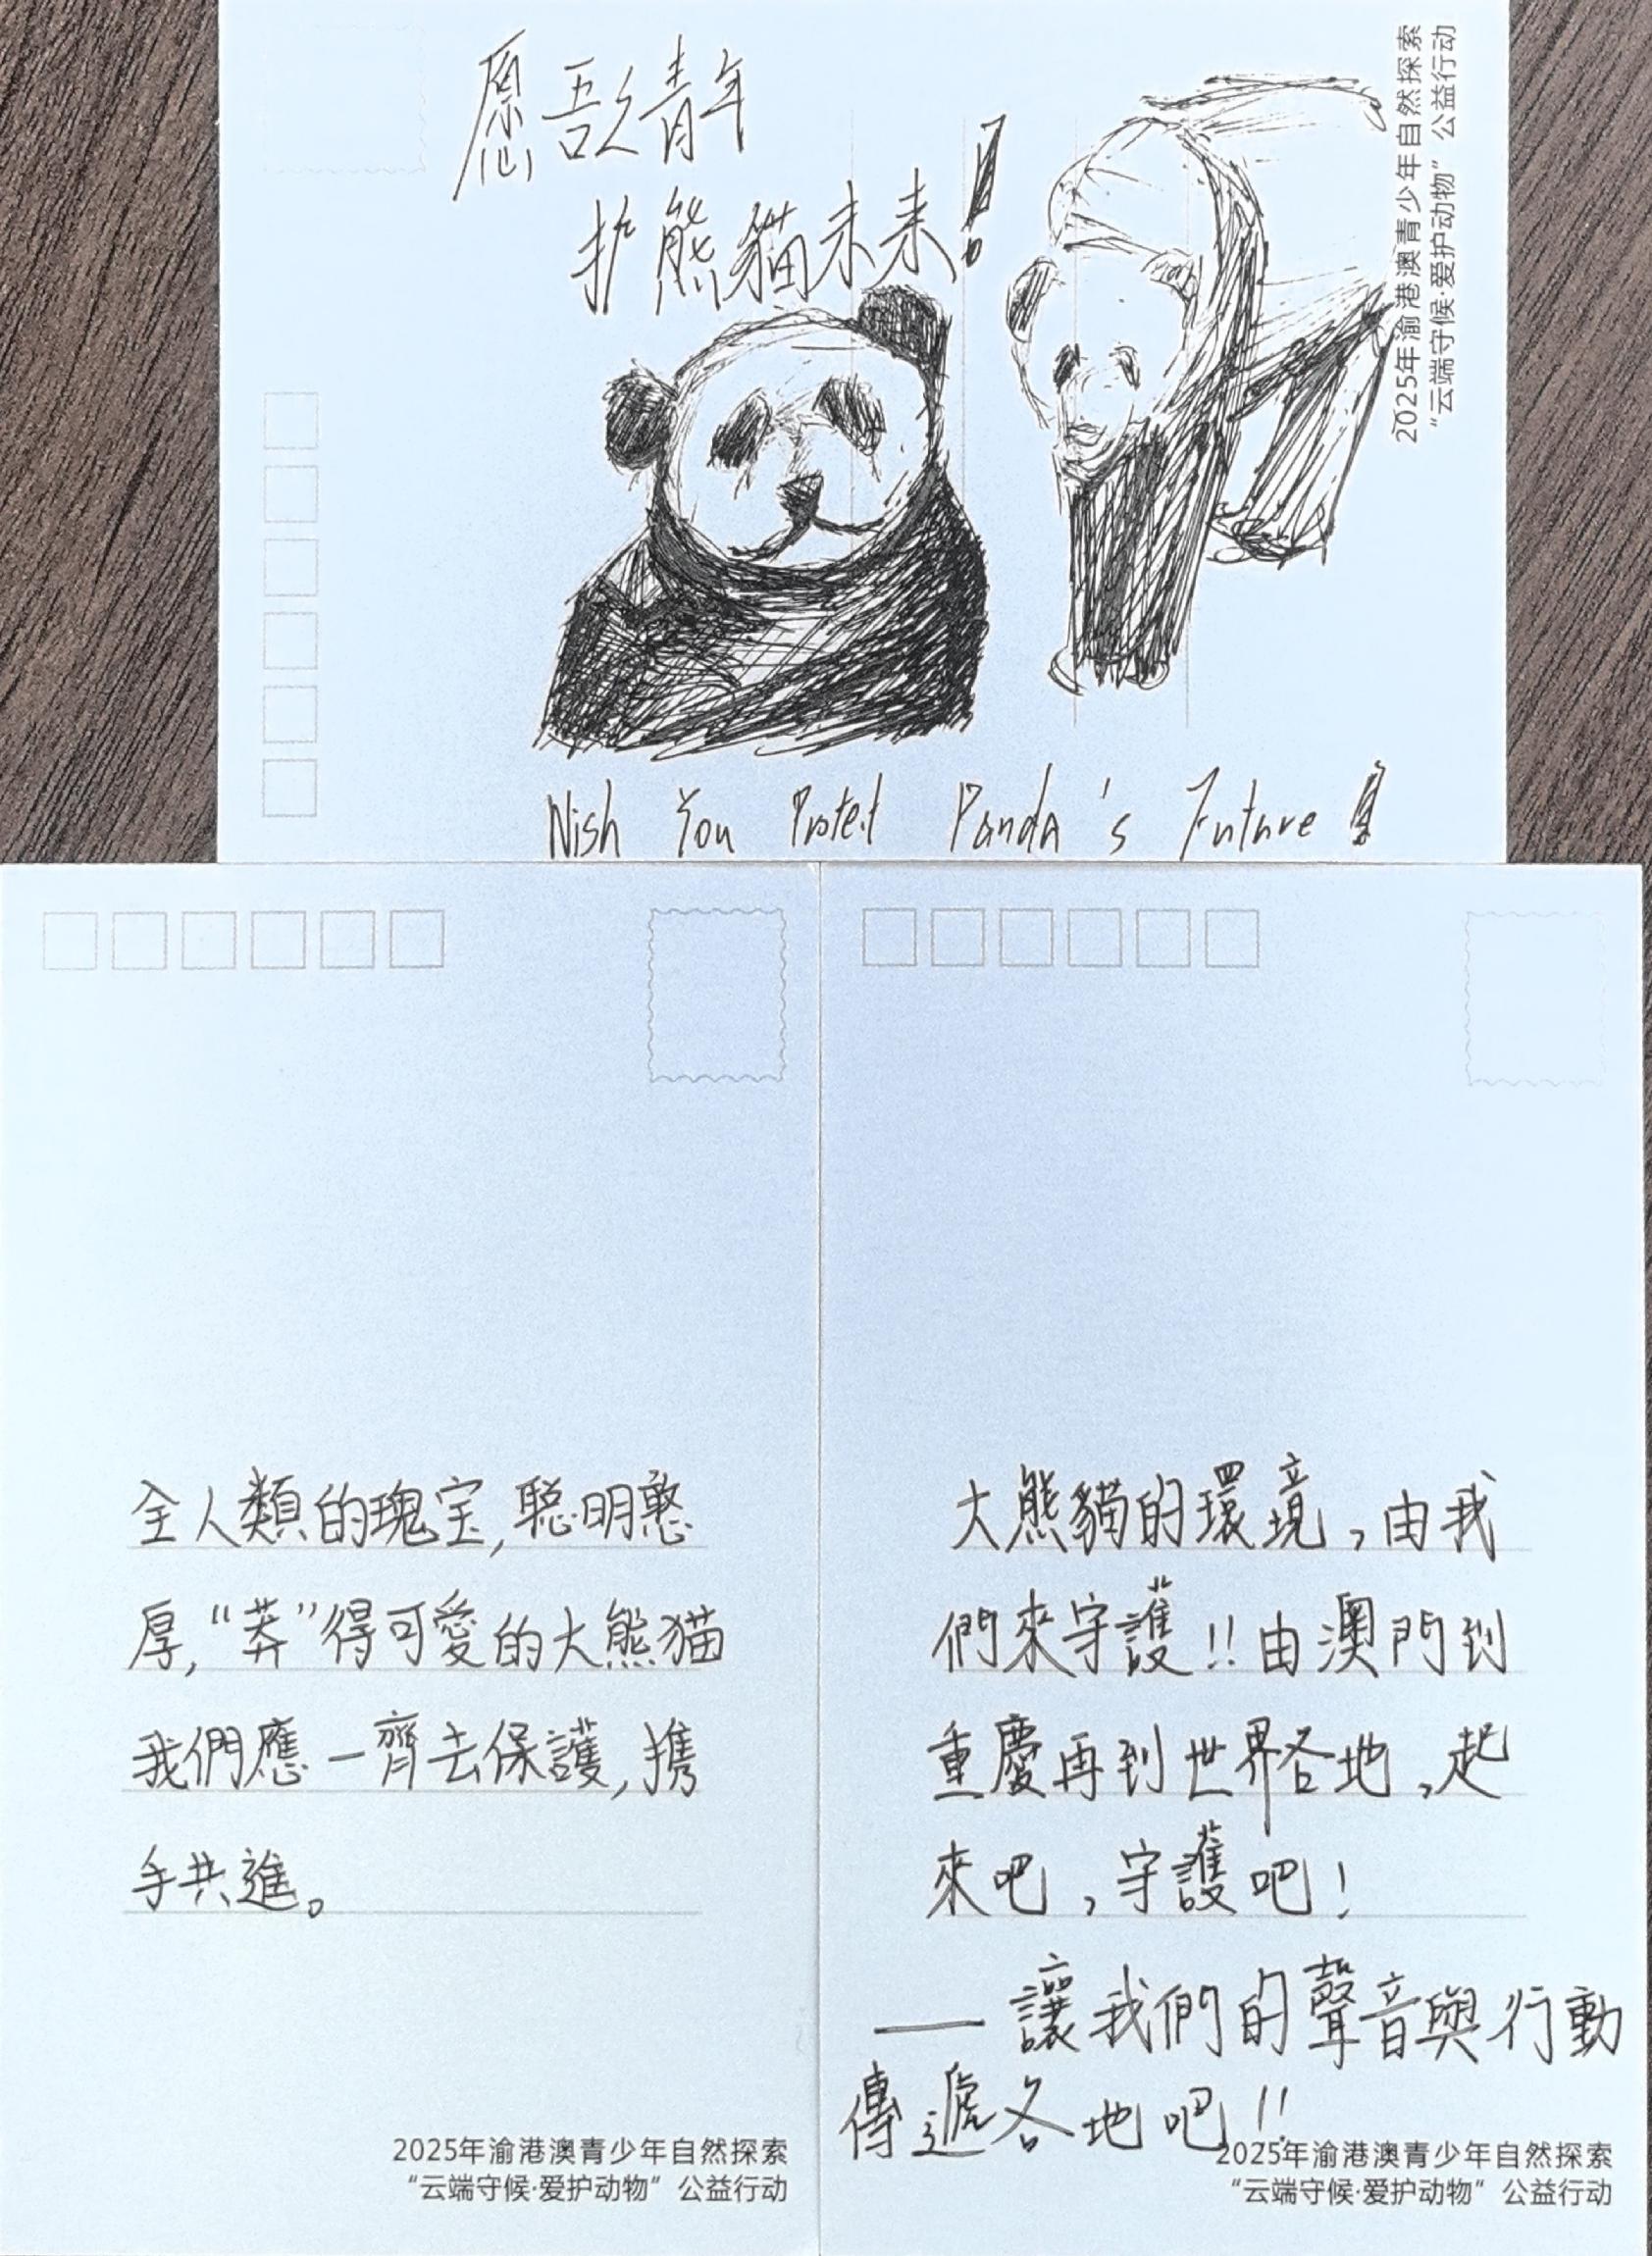 愿吾之青年
护熊貓未来!
2025年渝港澳青少年自然探索
“云端守候·爱护动物”公益行动
Wish You Protect Panda's Future!
全人類的瑰宝,聪明憨
厚,“莽”得可愛的大熊猫
我們應一齊去保護,携
手共進。
2025年渝港澳青少年自然探索
“云端守候·爱护动物”公益行动
大熊貓的環境,由我
們來守護!!由澳門到
重慶再到世界各地,起
來吧,守護吧!
——讓我們的聲音與行動
傳遞各地吧!!
2025年渝港澳青少年自然探索
“云端守候·爱护动物”公益行动